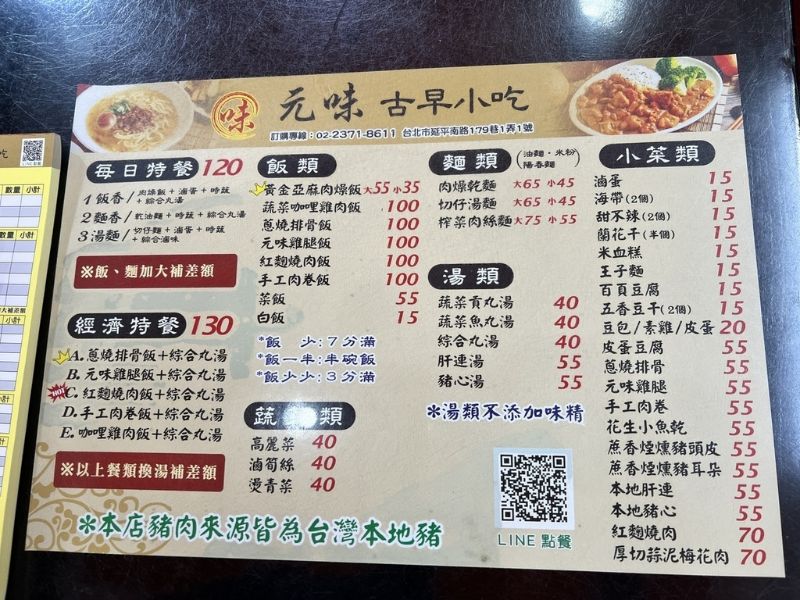 味 元味 古早小吃
訂購專線：02-2371-8611 台北市延平南路179巷1弄1號
每日特餐 120
1飯香/肉燥飯+滷蛋+時蔬+綜合丸湯
2麵香/乾油麵+時蔬+綜合丸湯
3湯麵/切仔麵+滷蛋+時蔬+綜合滷味
※飯、麵加大補差額
經濟特餐 130
A.蔥燒排骨飯+綜合丸湯
B.元味雞腿飯+綜合丸湯
HOT
C.紅麴燒肉飯+綜合丸湯
D.手工肉卷飯+綜合丸湯
E.咖哩雞肉飯+綜合丸湯
※以上餐類換湯補差額
飯類
黃金亞麻肉燥飯 大55 小35
蔬菜咖哩雞肉飯 100
蔥燒排骨飯 100
元味雞腿飯 100
紅麴燒肉飯 100
手工肉卷飯 100
菜飯 55
白飯 15
*飯 少:7分滿
*飯一半:半碗飯
*飯少少:3分滿
蔬 類
高麗菜 40
滷筍絲 40
燙青菜 40
麵類 (油麵・米粉 陽春麵)
肉燥乾麵 大65 小45
切仔湯麵 大65 小45
榨菜肉絲麵 大75 小55
湯類
蔬菜貢丸湯 40
蔬菜魚丸湯 40
綜合丸湯 40
肝連湯 55
豬心湯 55
*湯類不添加味精
LINE 點餐
小菜類
滷蛋 15
海帶(2個) 15
甜不辣(2個) 15
蘭花干(半個) 15
米血糕 15
王子麵 15
百頁豆腐 15
五香豆干(2個) 15
豆包/素雞/皮蛋 20
皮蛋豆腐 55
蔥燒排骨 55
元味雞腿 55
手工肉卷 55
花生小魚乾 55
蔗香煙燻豬頭皮 55
蔗香煙燻豬耳朵 55
本地肝連 55
本地豬心 55
紅麴燒肉 70
厚切蒜泥梅花肉 70
*本店豬肉來源皆為台灣本地豬
LINE 點餐
數量 小計
數量 小計
小計
小計